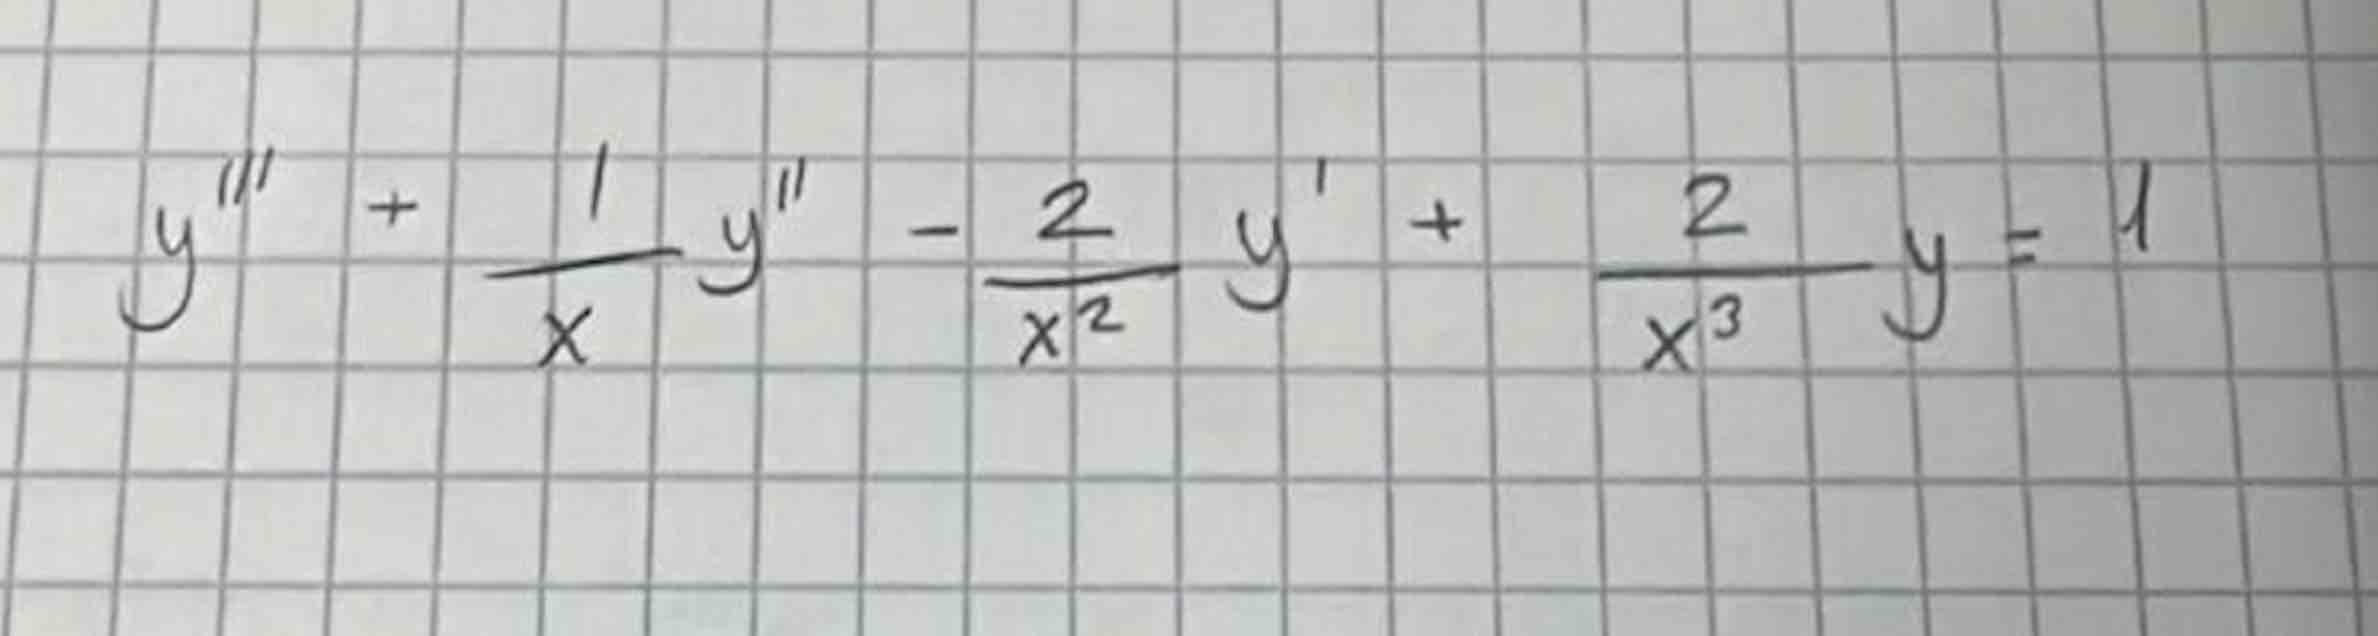 y''' + 1/x y'' - 2/x² y' + 2/x³ y = 1